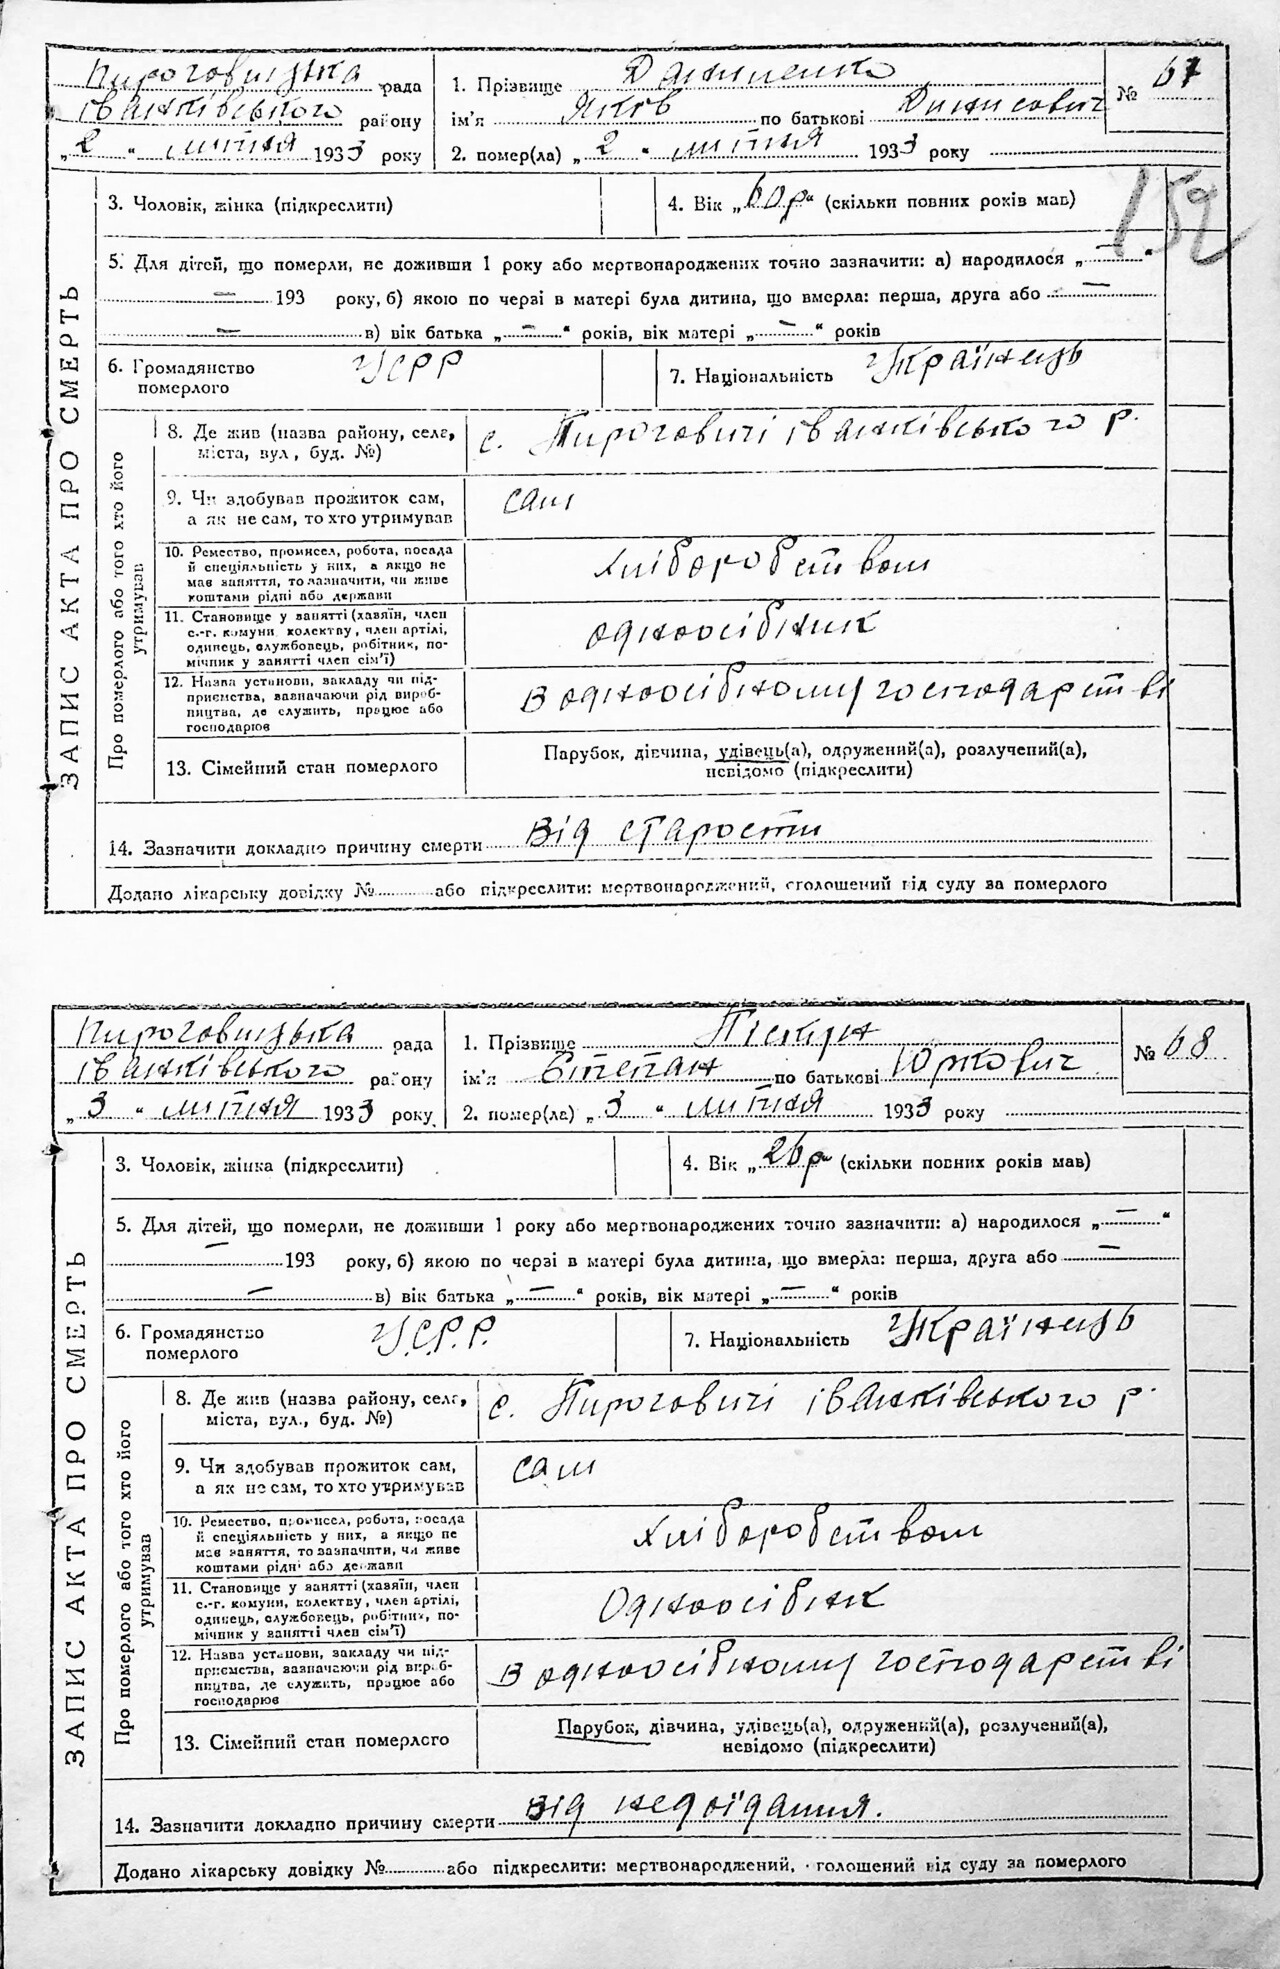 Пироговицька рада
Іванківського району
„ 2 “ липня 1933 року
1. Прізвище Даниленко
ім'я Яків по батькові Денисович
2. помер(ла) „ 2 “ липня 1933 року
№ 67
152
ЗАПИС АКТА ПРО СМЕРТЬ
3. Чоловік, жінка (підкреслити)
4. Вік „ 60 р “ (скільки повних років мав)
5. Для дітей, що померли, не доживши 1 року або мертвонароджених точно зазначити: а) народилося „ — “
— 193 року, б) якою по черзі в матері була дитина, що вмерла: перша, друга або —
— в) вік батька „ — “ років, вік матері „ — “ років
6. Громадянство померлого УСРР
7. Національність Українець
Про померлого або того хто його утримував
8. Де жив (назва району, села,
міста, вул., буд. №)
с. Пироговичі іванківського р.
9. Чи здобував прожиток сам,
а як не сам, то хто утримував
сам
10. Ремество, промисел, робота, посада
й спеціяльність у них, а якщо не
мав заняття, то зазначити, чи живе
коштами рідні або держави
Хліборобством
11. Становище у занятті (хазяїн, член
с.-г. комуни, колектву, член артілі,
одинець, службовець, робітник, по-
мічник у занятті член сім'ї)
одноосібник
12. Назва установи, закладу чи під-
приємства, зазначаючи рід вироб-
ництва, де служить, працює або
господарює
В одноосібному господарстві
13. Сімейний стан померлого
Парубок, дівчина, удівець(а), одружений(а), розлучений(а),
невідомо (підкреслити)
14. Зазначити докладно причину смерти Від старости
Додано лікарську довідку № або підкреслити: мертвонароджений, оголошений від суду за померлого
Пироговицька рада
Іванківського району
„ 3 “ липня 1933 року
1. Прізвище
ім'я Степан по батькові Юркович
2. помер(ла) „ 3 “ липня 1933 року
№ 68
ЗАПИС АКТА ПРО СМЕРТЬ
3. Чоловік, жінка (підкреслити)
4. Вік „ 26 р “ (скільки повних років мав)
5. Для дітей, що померли, не доживши 1 року або мертвонароджених точно зазначити: а) народилося „ — “
— 193 року, б) якою по черзі в матері була дитина, що вмерла: перша, друга або —
— в) вік батька „ — “ років, вік матері „ — “ років
6. Громадянство померлого У.С.Р.Р.
7. Національність Українець
Про померлого або того хто його утримував
8. Де жив (назва району, села,
міста, вул., буд. №)
с. Пироговичі іванківського р.
9. Чи здобував прожиток сам,
а як не сам, то хто утримував
сам
10. Ремество, промисел, робота, посада
й спеціяльність у них, а якщо не
мав заняття, то зазначити, чи живе
коштами рідні або держави
Хліборобством
11. Становище у занятті (хазяїн, член
с.-г. комуни, колектву, член артілі,
одинець, службовець, робітник, по-
мічник у занятті член сім'ї)
Одноосібник
12. Назва установи, закладу чи під-
приємства, зазначаючи рід вироб-
ництва, де служить, працює або
господарює
В одноосібному господарстві
13. Сімейний стан померлого
Парубок, дівчина, удівець(а), одружений(а), розлучений(а),
невідомо (підкреслити)
14. Зазначити докладно причину смерти від недоїдання.
Додано лікарську довідку № або підкреслити: мертвонароджений, оголошений від суду за померлого